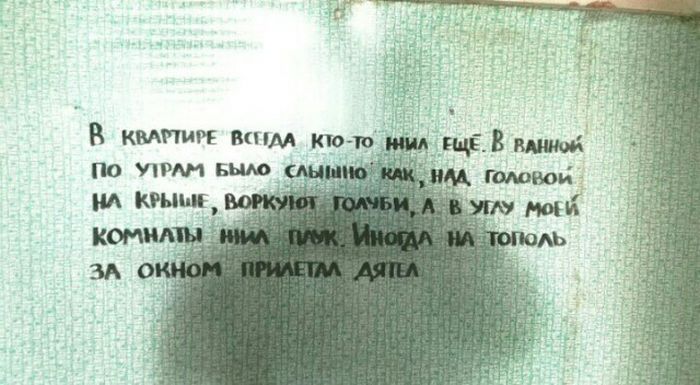 В КВАРТИРЕ ВСЕГДА КТО-ТО ЖИЛ ЕЩЁ. В ВАННОЙ
ПО УТРАМ БЫЛО СЛЫШНО КАК, НАД ГОЛОВОЙ
НА КРЫШЕ, ВОРКУЮТ ГОЛУБИ, А В УГЛУ МОЕЙ
КОМНАТЫ ЖИЛ ПАУК. ИНОГДА НА ТОПОЛЬ
ЗА ОКНОМ ПРИЛЕТАЛ ДЯТЕЛ